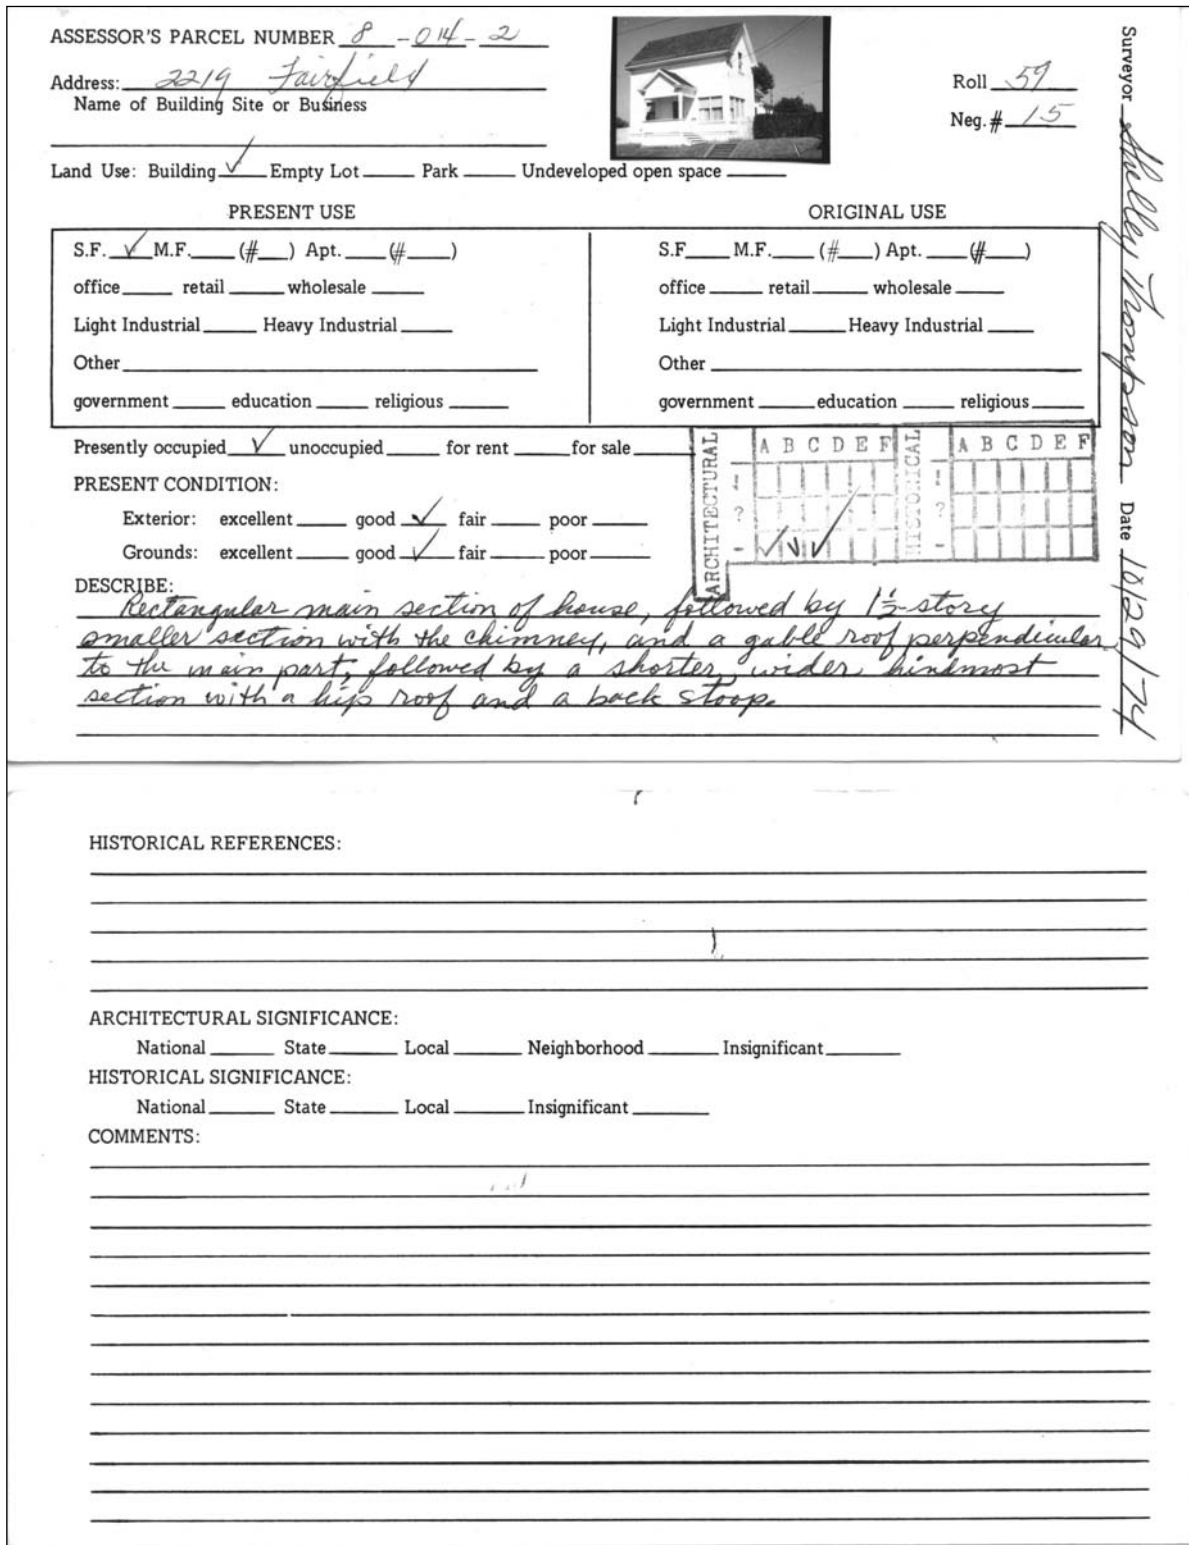 ASSESSOR'S PARCEL NUMBER 8 - 014 - 2
Address: 2219 Fairfield
Name of Building Site or Business
Roll 59
Neg. # 15
Surveyor Shelley Thompson Date 10/29/74
Land Use: Building ✓ Empty Lot Park Undeveloped open space
PRESENT USE
S.F. ✓ M.F. (# ) Apt. (# )
office retail wholesale
Light Industrial Heavy Industrial
Other
government education religious
ORIGINAL USE
S.F M.F. (# ) Apt. (# )
office retail wholesale
Light Industrial Heavy Industrial
Other
government education religious
Presently occupied ✓ unoccupied for rent for sale
ARCHITECTURAL
A B C D E F
?
HISTORICAL
A B C D E F
?
PRESENT CONDITION:
Exterior: excellent good ✓ fair poor
Grounds: excellent good ✓ fair poor
DESCRIBE:
Rectangular main section of house, followed by 1½-story
smaller section with the chimney, and a gable roof perpendicular
to the main part, followed by a shorter, wider hindmost
section with a hip roof and a back stoop.
HISTORICAL REFERENCES:
ARCHITECTURAL SIGNIFICANCE:
National State Local Neighborhood Insignificant
HISTORICAL SIGNIFICANCE:
National State Local Insignificant
COMMENTS: